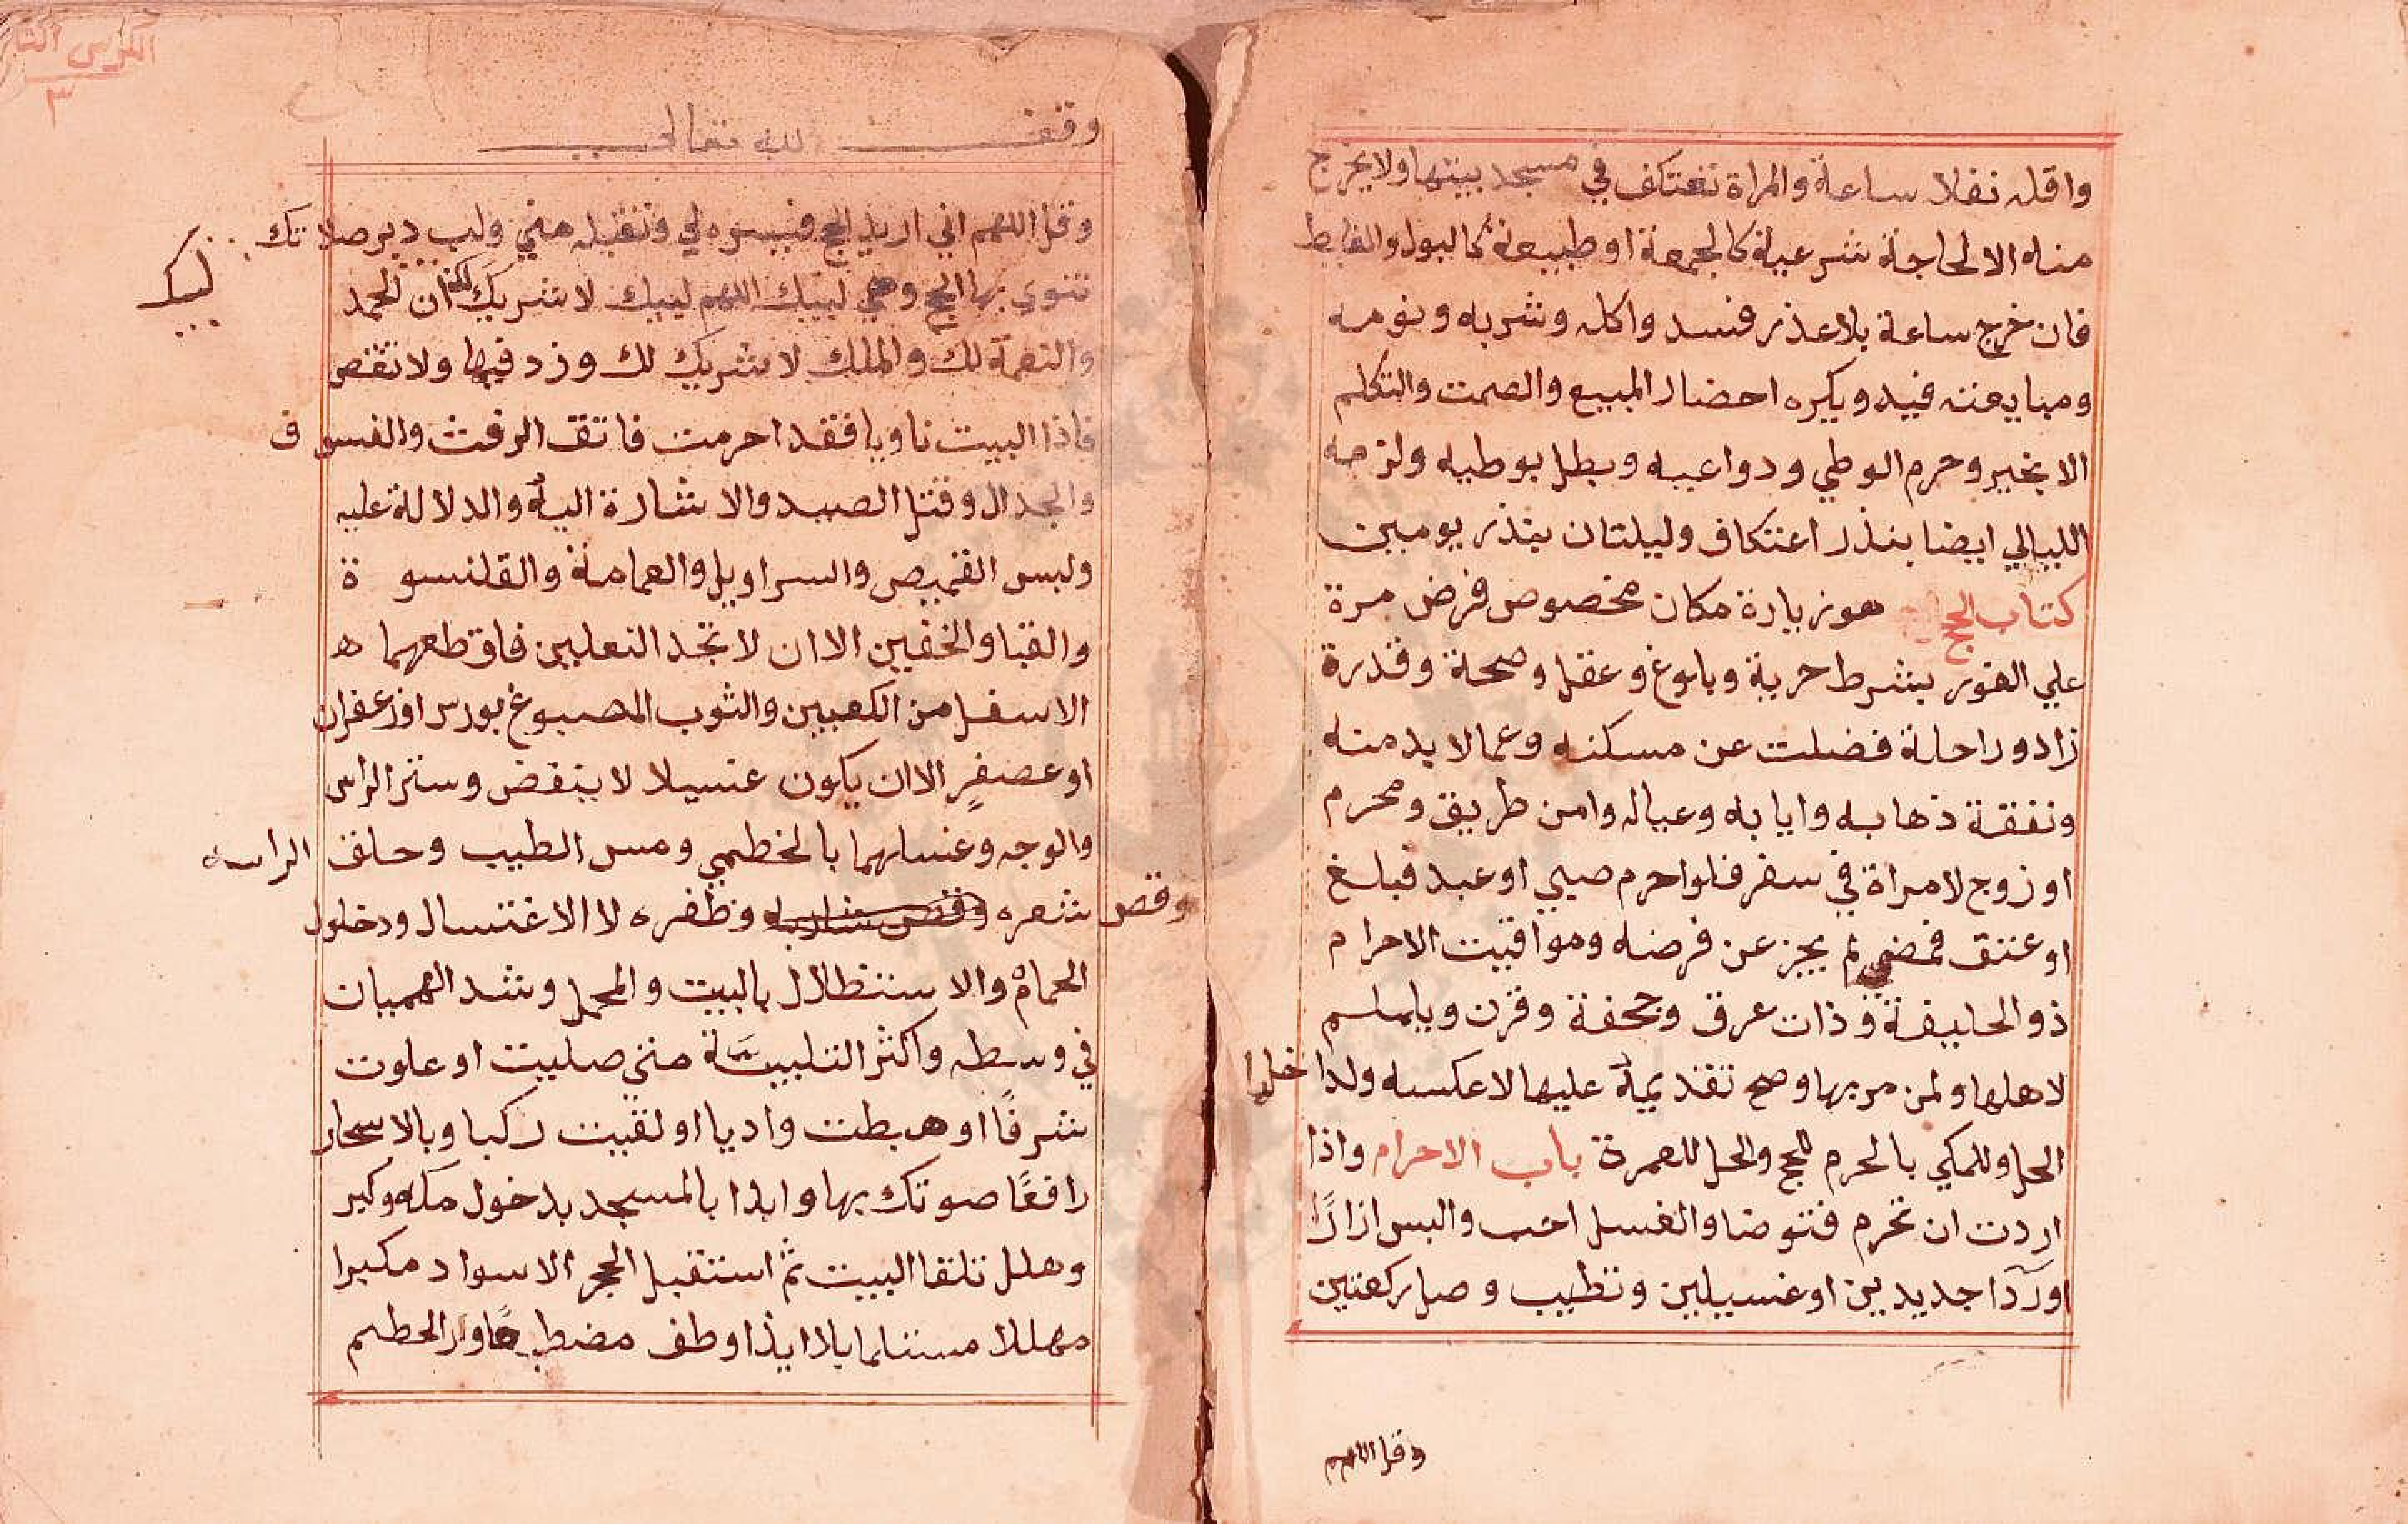 واقله نفلا ساعة والمراة تعتكف في مسجد بيتها ولا يخرج
منه الا لحاجة شرعية كالجمعة او طبيعة كالبول والغايط
فان خرج ساعة بلا عذر فسد واكله وشربه ونومه
ومبايعته فيه ويكره احضار المبيع والصمت والتكلم
الا بخير وحرم الوطي ودواعيه وبطل بوطيه ولزمه
الليالي ايضا بنذر اعتكاف وليلتان بنذر يومين
كتاب الحج هو زيارة مكان مخصوص فرض مرة
علي الفور بشرط حرية وبلوغ وعقل وصحة وقدرة
زاد وراحلة فضلت عن مسكنه وعمالا بد منه
ونفقة ذهابه وايابه وعياله وامن طريق ومحرم
او زوج لامراة في سفر فلو احرم صبي او عبد فبلغ
او عتق فمضي لم يجز عن فرضه ومواقيت الاحرام
ذو الحليفة وذات عرق وجحفة وقرن ويلملم
لاهلها ولمن مر بها وصح تقديمه عليها لا عكسه ولداخلها
الحل وللمكي بالحرم للحج والحل للعمرة باب الاحرام واذا
اردت ان تحرم فتوضا والغسل احب والبس ازارًا
اورداً جديدين او غسيلين وتطيب وصل ركعتين
وقل اللهم
الكرس الثا
٣
وقف لله تعالى
وقل اللهم اني اريد الحج فيسره لي وتقبله مني ولب دبر صلاتك
لبيك
تنوي بها الحج وهي لبيك اللهم لبيك لا شريك لك ان الحمد
والنعمة لك والملك لا شريك لك وزد فيها ولا تنقص
فاذا لبيت ناويا فقد احرمت فاتق الرفث والفسوق
والجدال وقتل الصيد والاشارة اليه والدلالة عليه
ولبس القميص والسراويل والعمامة والقلنسوة
والقبا والخفين الا ان لا تجد النعلين فاقطعهما ه
الاسفل من الكعبين والثوب المصبوغ بورس اوزعفران
او عصفرٍ الا ان يكون غسيلا لا ينقض وستر الراس
والوجه وغسلهما بالخطمي ومس الطيب وحلق الراسه
وقص شعره وقص شاربه وظفره لا الاغتسال ودخلول
الحمام والاستظلال بالبيت والمحمل وشد الهميان
في وسطه واكثر التلبية متي صليت او علوت
شرفًا او هبطت واديا او لقيت ركبا وبالاسحار
رافعًا صوتك بها وابدا بالمسجد بدخول مكه وكبر
وهلل تلقا البيت ثم استقبل الحجر الاسواد مكبرا
مهللا مستلما بلا ايذا وطف مضطبعًا ورا الحطيم